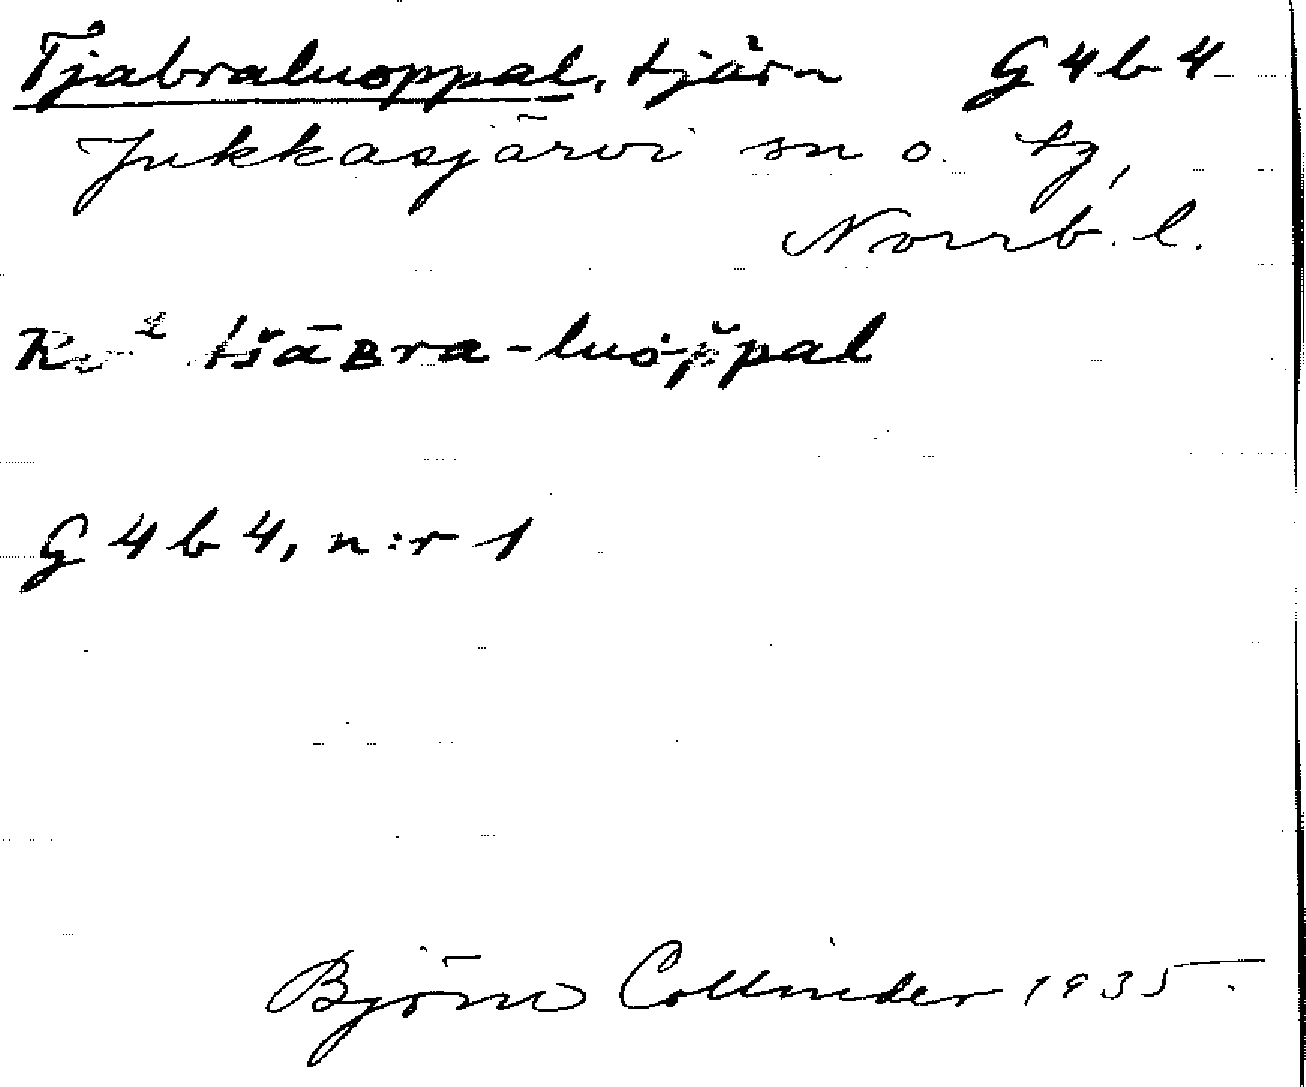 Tjabraluoppal, tjärn G 4 b 4
Jukkasjärvi sn o. tg,
Norrb. l.
tšāʙra-luop̆pal
G 4 b 4, n:r 1
Björn Collinder 1935.